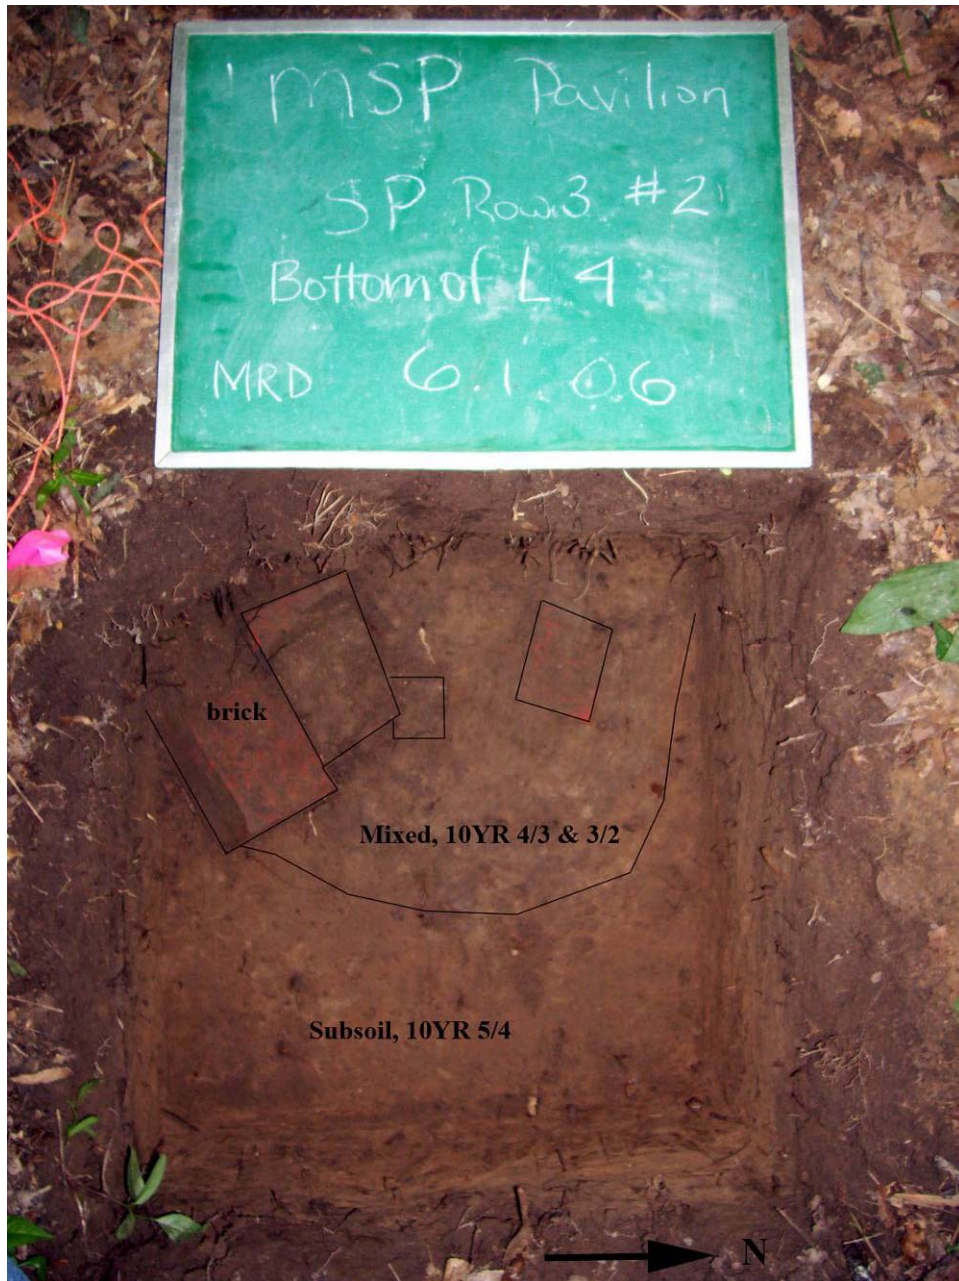 MSP Pavilion
SP Row 3 #2
Bottom of L 4
MRD 6.1 06
brick
Mixed, 10YR 4/3 & 3/2
Subsoil, 10YR 5/4
N